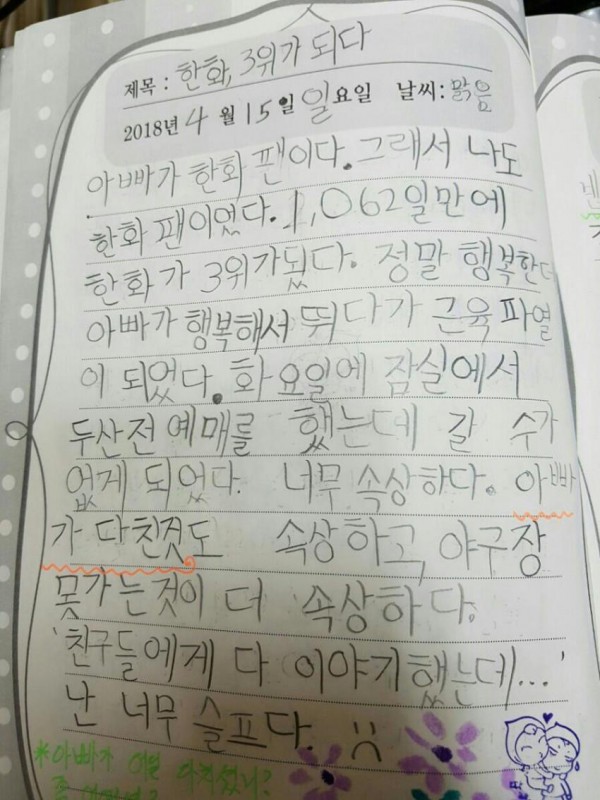 제목 : 한화, 3위가 되다
2018년 4월 15일 일요일 날씨: 맑음
아빠가 한화 팬이다. 그래서 나도
한화 팬이었다. 1,062일만에
한화가 3위가됬다. 정말 행복한다
아빠가 행복해서 뛰다가 근육파열
이 되었다. 화요일에 잠실에서
두산전 예매를 했는데 갈 수가
없게 되었다. 너무 속상하다. 아빠
가 다친것도 속상하고, 야구장
못가는것이 더 속상하다.
'친구들에게 다 이야기했는데...'
난 너무 슬프다. :(
*아빠가